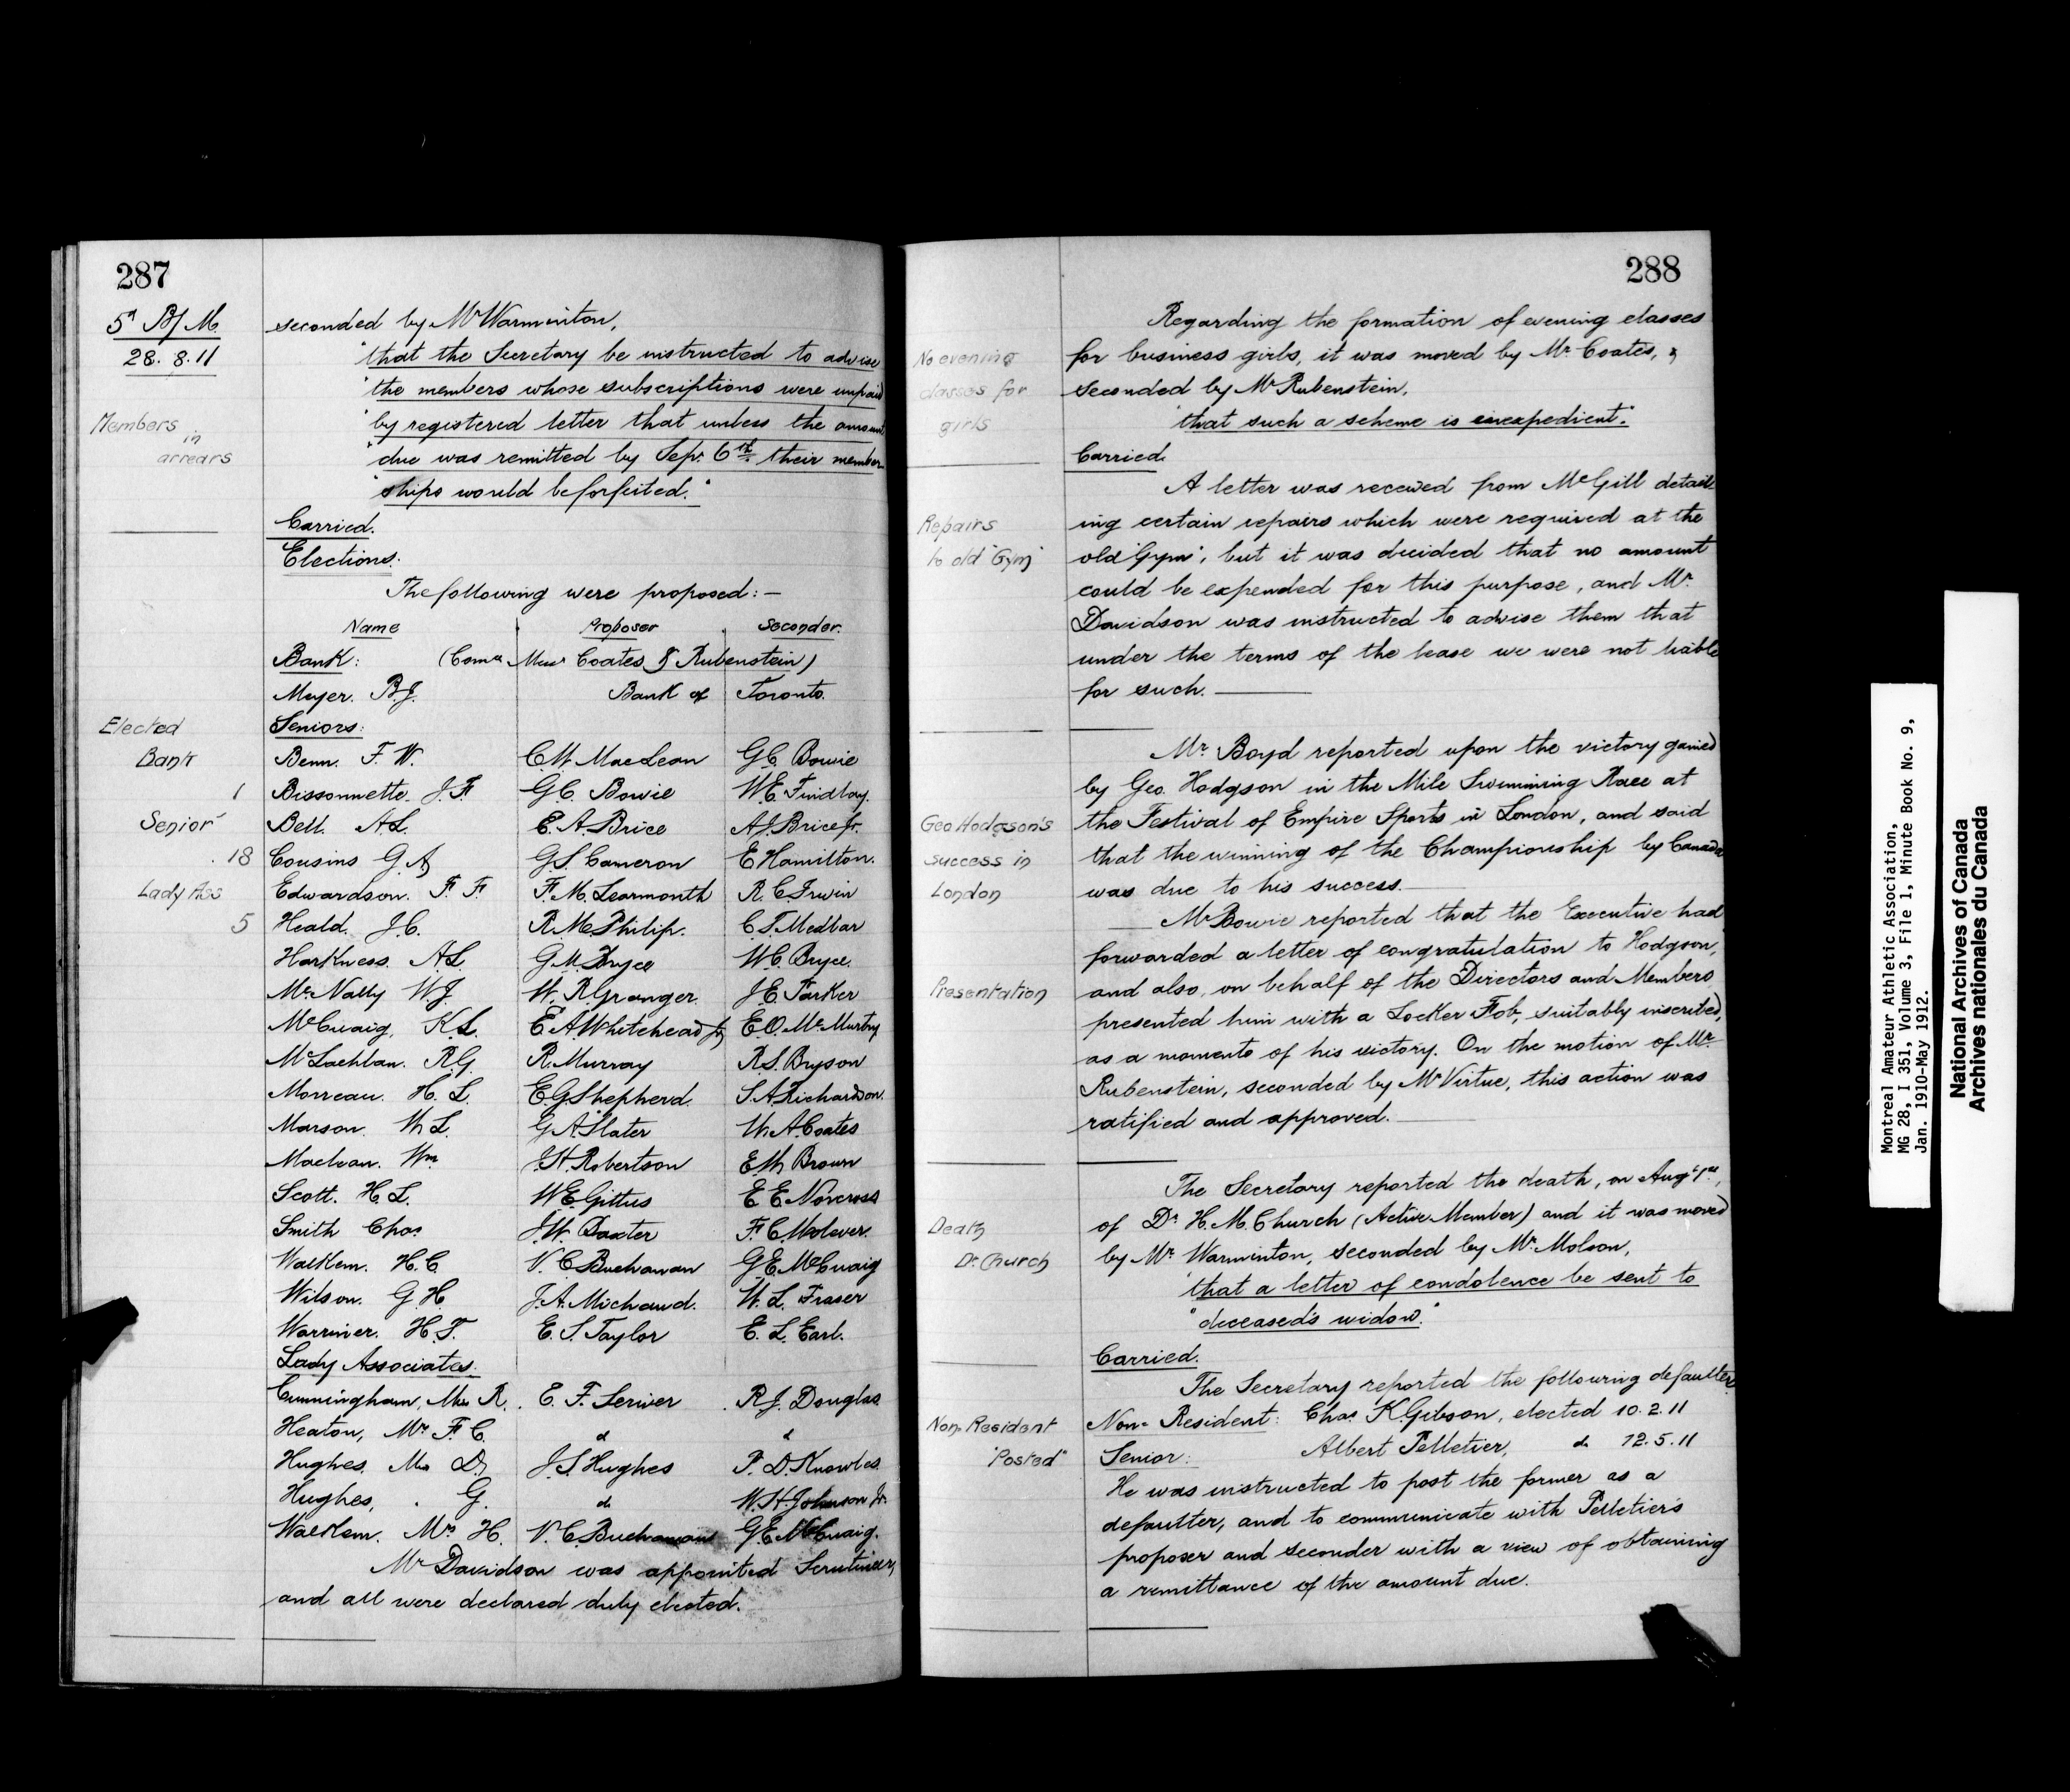 287
5th B/M.
28. 8. 11
seconded by Mr Warminton,
"that the Secretary be instructed to advise
"the members whose subscriptions were unpaid
"by registered letter that unless the amount
"due was remitted by Sep. 6th. their member-
"ships would be forfeited."
Members
in
arrears
Carried.
Elections:
The following were proposed:—
Name Proposer Seconder.
Bank: (Comee Messrs Coates & Rubenstein)
Meyer. B.J. Bank of Toronto.
Elected
Bank
1
Senior
18
Lady Ass
5
Seniors:
Benn. F. W. C.W. MacLean G.C. Bowie
Bissonnette. J.F. G.C. Bowie W.E. Findlay.
Bell. A.L. E.A. Brice A.J. Brice Jr.
Cousins G.A. G.S. Cameron E. Hamilton.
Edwardson. F. F. F.M. Learmonth R.C. Irwin
Heald. J.C. R.M. Philip. C.T. Medbar
Harkness. A.L. G.M. Bryce W.C. Bryce.
McNally W.J. W.R. Granger. J.E. Parker
McCuaig, K.L. E.A. Whitehead Jr. E.O. McMurtry
McLachlan. R.G. R. Murray R.S. Bryson
Morreau. H. L. E.G. Shepherd. S.A. Richardson.
Marson. W.L. G.A. Slater W.A. Coates
Maclean. Wm J.H. Robertson E.W. Brown
Scott. H L. W.E. Gittus E.E. Norcross
Smith Chas. J.W. Baxter F.C. McLever.
Walklem. H.C. V.C. Buchanan G.E. McCuaig
Wilson. G.H. J.A. Michaud. W.L. Fraser
Warriner. H.T. E.S. Taylor E.L. Earl.
Lady Associates.
Cunningham, Miss R. E.F. Scriver R.J. Douglas
Heaton, Mrs F.C. do do
Hughes. Miss D. J.S. Hughes P.D. Knowles.
Hughes, " G. do W.H. Johnson Jr.
Walklem. Mrs H. V.C. Buchanan G.E. McCuaig.
Mr Davidson was appointed Scrutineer,
and all were declared duly elected.
288
Regarding the formation of evening classes
for business girls, it was moved by Mr Coates, &
seconded by Mr Rubenstein,
"that such a scheme is inexpedient."
No evening
classes for
girls
Carried.
A letter was received from McGill detail-
ing certain repairs which were required at the
old "Gym", but it was decided that no amount
could be expended for this purpose, and Mr.
Davidson was instructed to advise them that
under the terms of the lease we were not liable
for such.
Repairs
to old "Gym"
Mr Boyd reported upon the victory gained
by Geo. Hodgson in the Mile Swimming Race at
the Festival of Empire Sports in London, and said
that the winning of the Championship by Canada
was due to his success.
Geo Hodgson's
success in
London
Mr Bowie reported that the Executive had
forwarded a letter of congratulation to Hodgson,
and also, on behalf of the Directors and Members
presented him with a Locker Fob, suitably inscribed,
as a momento of his victory. On the motion of Mr
Rubenstein, seconded by Mr Virtue, this action was
ratified and approved.
Presentation
The Secretary reported the death, on Augt 1st,
of Dr H.M. Church (Active Member) and it was moved
by Mr Warminton, seconded by Mr Molson,
"that a letter of condolence be sent to
"deceased's widow."
Death
Dr. Church
Carried.
The Secretary reported the following defaulters
Non-Resident: Chas. K. Gibson, elected 10.2.11
Senior: Albert Pelletier, do 12.5.11
He was instructed to post the former as a
defaulter, and to communicate with Pelletier's
proposer and seconder with a view of obtaining
a remittance of the amount due.
Non-Resident
"Posted"
Montreal Amateur Athletic Association,
MG 28, I 351, Volume 3, File 1, Minute Book No. 9,
Jan. 1910-May 1912.
National Archives of Canada
Archives nationales du Canada